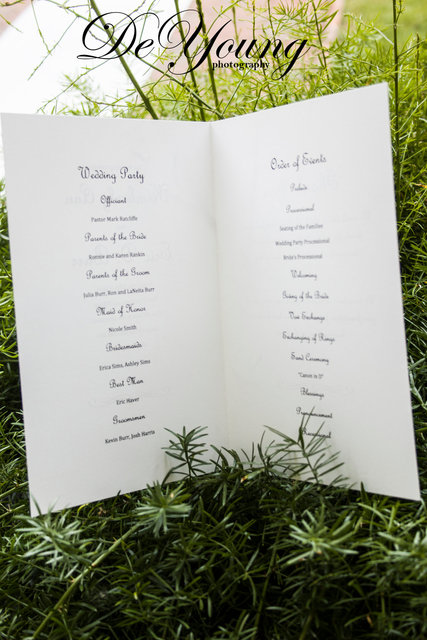 DeYoung
photography
Wedding Party
Officiant
Pastor Mark Ratcliffe
Parents of the Bride
Ronnie and Karen Rankin
Parents of the Groom
Julia Burr, Ron and LaNetta Burr
Maid of Honor
Nicole Smith
Bridesmaids
Erica Sims, Ashley Sims
Best Man
Eric Haver
Groomsmen
Kevin Burr, Josh Harris
Order of Events
Prelude
Processional
Seating of the Families
Wedding Party Processional
Bride's Processional
Welcoming
Giving of the Bride
Vow Exchange
Exchanging of Rings
Sand Ceremony
"Canon in D"
Blessings
Pronouncement